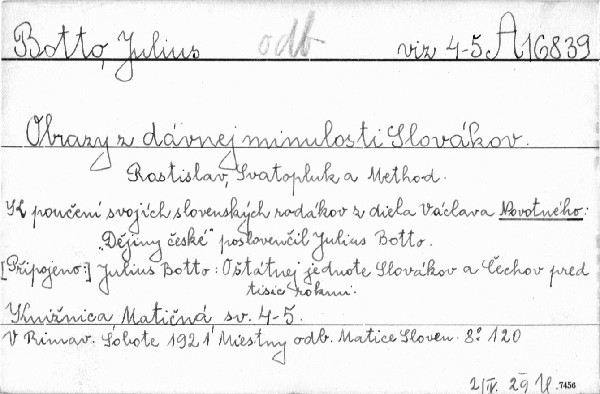 Botto, Julius odb viz 4-5 A 16839
Obrazy z dávnej minulosti Slovákov.
Rastislav, Svatopluk a Method.
K poučení svojích slovenských rodákov z diela Václava Novotného:
"Dějiny české" poslovenčil Julius Botto.
[Připojeno:] Julius Botto: O štátnej jednote Slovákov a Čechov pred
tisíc rokmi.
Knižnica Matičná sv. 4-5.
V Rimav. Sobote 1921 Miestny odb. Matice Sloven. 8° 120
2/IV. 29 U. 7456